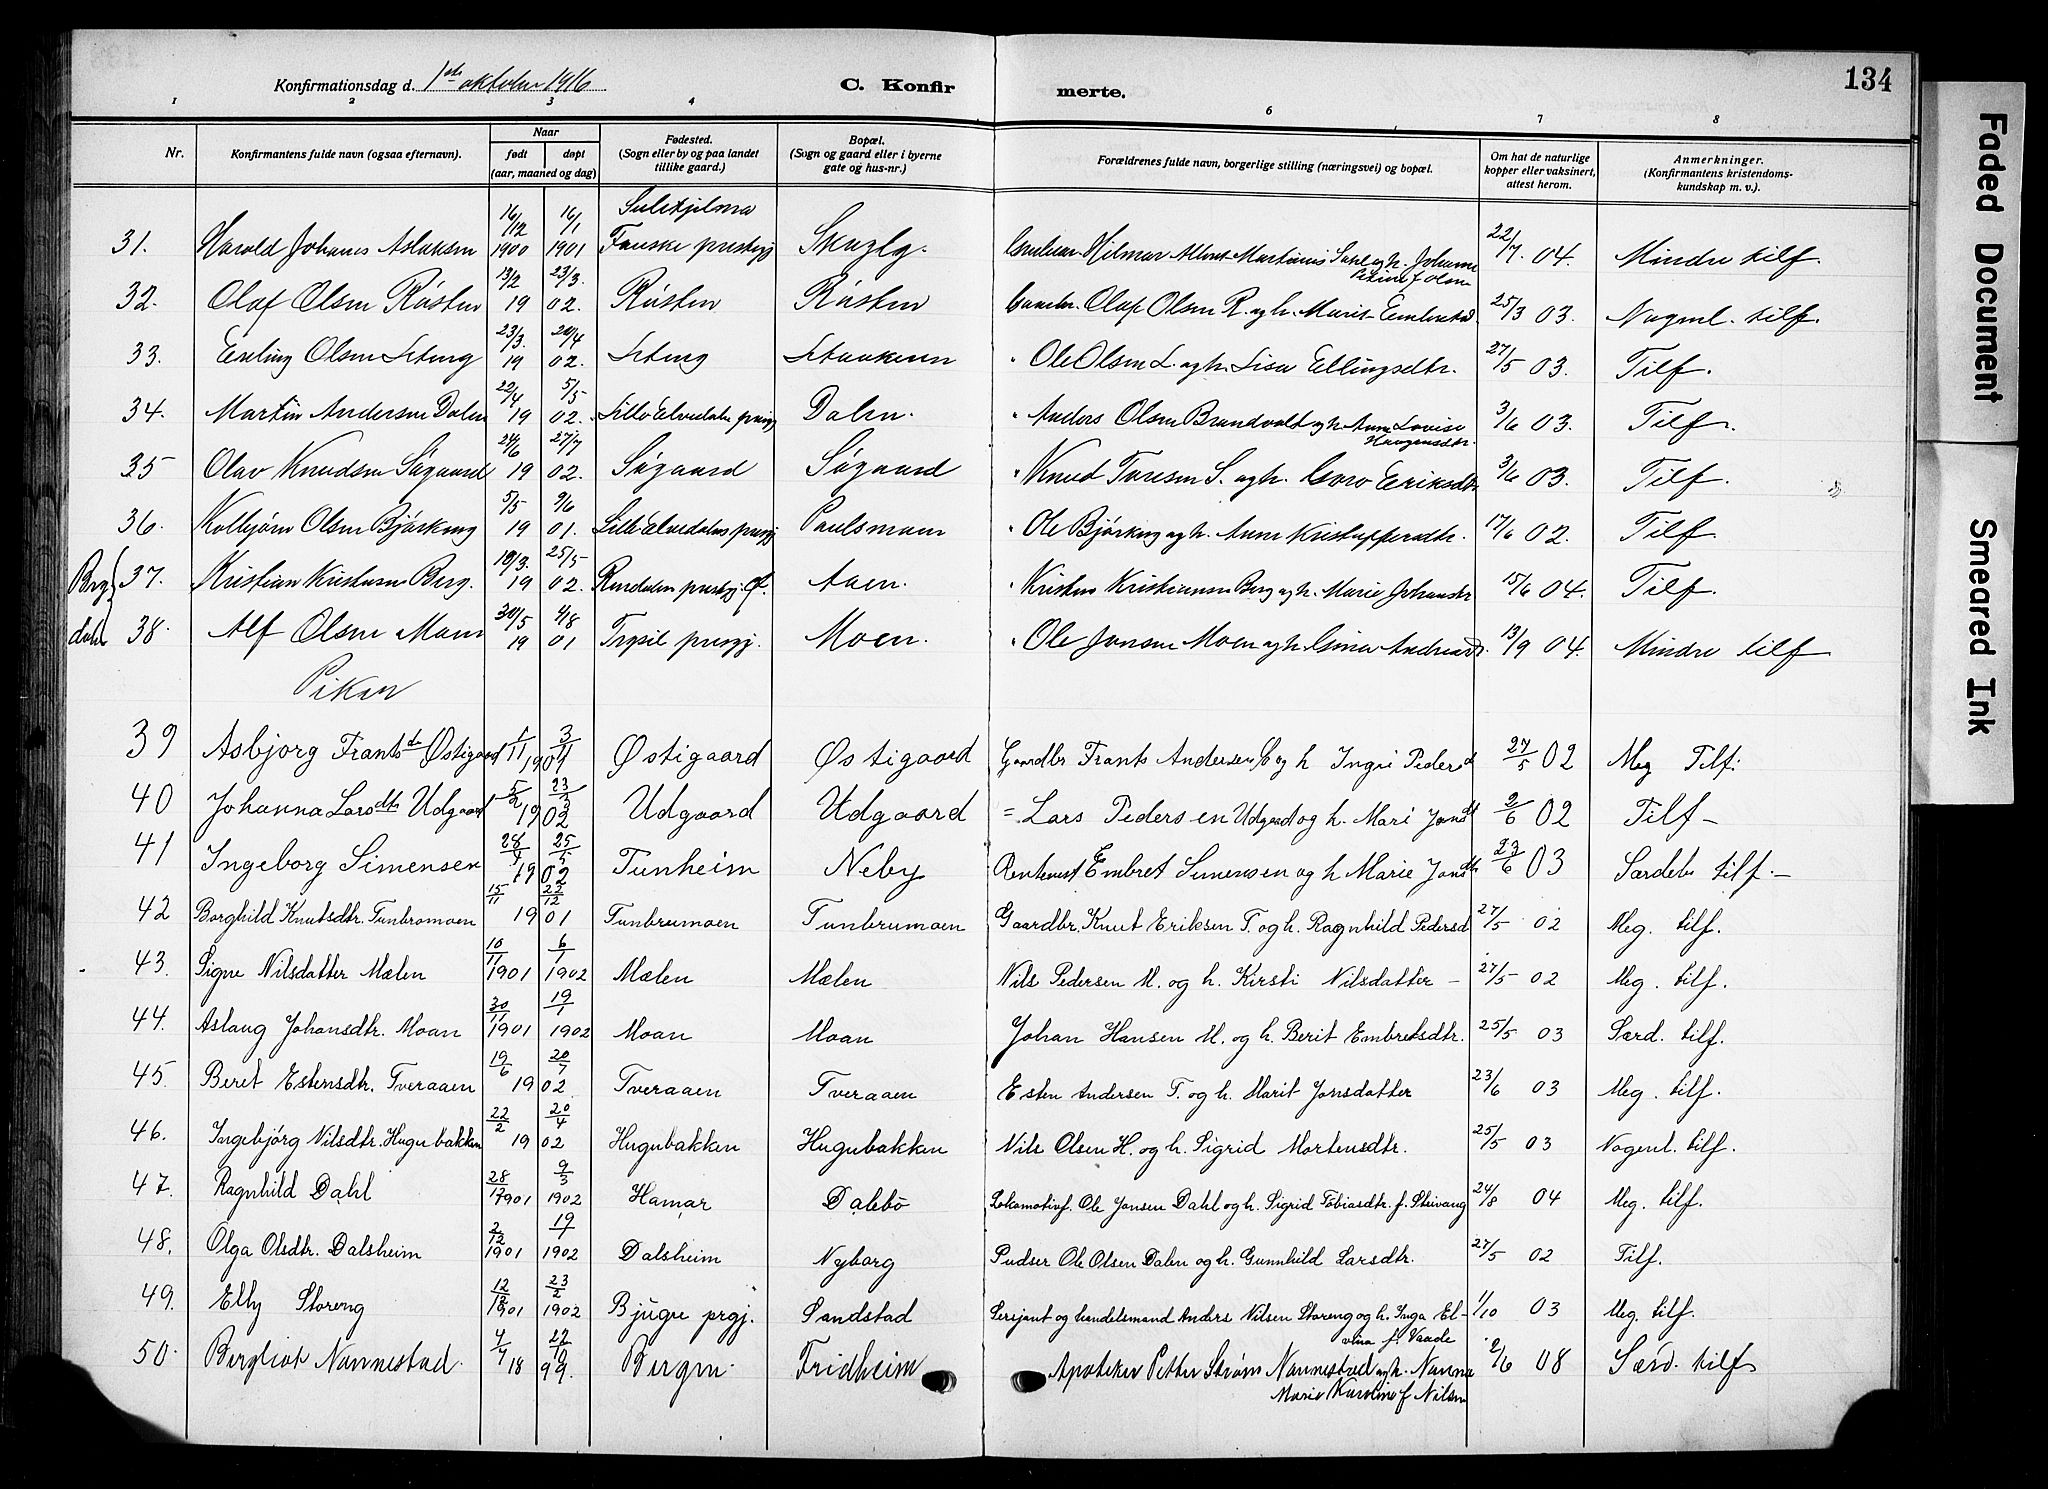 134
Konfirmationsdag d. 1ste oktober 1916
C. Konfirmerte.
1 2 3 4 6 7 8
Nr.
Konfirmantens fulde navn (ogsaa efternavn).
Naar
født
døpt
(aar, maaned og dag)
Fødested.
(Sogn eller by og paa landet
tillike gaard.)
Bopæl.
(Sogn og gaard eller i byerne
gate og hus-nr.)
Forældrenes fulde navn, borgerlige stilling (næringsvei) og bopæl.
Om hat de naturlige
kopper eller vaksinert,
attest herom.
Anmerkninger.
(Konfirmantens kristendoms-
kundskap m. v.).
31. Harald Johanes Aslaksen 16/12 1900 16/1 1901 Sulitjelma Fauske prestegj 22/7 04. Mindre tilf.
32. Olaf Olsen Røsten 13/2 19 23/3 02. Røsten Røsten Olaf Olsen R. og h. Marit Embretsd. 25/3 03. Nogenl. tilf.
33. Erling Olsen 23/3 19 20/4 02. Ole Olsen L. og h. Lisa Ellingsdtr. 27/5 03. Tilf.
34. Martin Andersen Dalen 22/4 19 5/5 02. Lille Elvedalen presgj Dalen. " Anders Olsen Brandvold og h. Anne Lovise Haagensdtr. 3/6 03. Tilf.
35 Olav Knudsen Søgaard 24/6 19 27/7 02. Søgaard Søgaard " Knud Toresen S. og h. Goro Eriksdtr 3/6 03. Tilf.
36. Kolbjørn Olsen Bjørkeng 5/5 19 9/6 01. Lille Elvedalens presgj Paulsmoen " Ole Bjørkeng og h. Anne Kristoffersdtr. 17/6 02. Tilf.
37. Kristian Kristensen Berg. 19/3. 19 25/5 02. Rendalen prestgj. Aaen. " Kristen Kristiansen Berg og h. Marie Johansdtr 15/6 04. Tilf.
38. Alf Olsen Moen 30/5 19 4/8 01 Trysil presgj. Moen. " Ole Jonsen Moen og h. Gina Andreasd. 13/9 04. Mindre tilf
Piker
39 Asbjørg Frantsdtr Østigaard 1/11 3/11 1901 Østigaard Østigaard Gaardbr Frants Andersen Ø og h Ingri Pedersd 27/5 02 Meg Tilf:
40 Johanna Larsdtr Udgaard 5/2 23/3 1902 Udgaard Udgaard = Lars Pedersen Udgaard og h. Mari Jonsdt 2/6 02 Tilf –
41 Ingeborg Simensen 28/4 25/5 1902 Tunheim Neby Embret Simensen og h Marie Jonsdtr 23/6 03 Særdeles tilf. –
42 Borghild Knutsdtr. Tunbromoen 15/11 22/12 1901 Tunbrumoen Tunbrumoen Gaardbr. Knut Eriksen T. og h. Ragnhild Pedersd 27/5 02 Meg. tilf.
43. Signe Nilsdatter Mælen 10/11 1901 6/1 1902 Mælen Mælen Nils Pedersen M. og h. Kirsti Nilsdatter – 27/5 02 Meg. tilf.
44. Aslaug Johansdtr. Moan 30/11 1901 19/1 1902 Moan Moan Johan Hansen M. og h. Berit Embretsdtr. 25/5 03 Særd. tilf.
45. Beret Estensdtr. Tveraaen 19/6 20/7 1902 Tveraaen Tveraaen Esten Andersen T. og h. Marit Jonsdatter 23/6 03 Meg. tilf.
46. Ingebjørg Nilsdtr. Hugubakken 22/2 20/4 1902 Hugubakken Hugubakken Nils Olsen H. og h. Sigrid Mortensdtr. 25/5 03 Nogenl. tilf.
47. Ragnhild Dahl 28/12 1901 9/3 1902 Hamar Dalebo Lokomotivf. Ole Jonsen Dahl og h. Sigrid Tobiasdtr. f. Steivang 24/8 04 Meg. tilf.
48. Olga Olsdtr. Dalsheim 2/12 1901 19/1 1902 Dalsheim Nyborg Pudser Ole Olsen Dalen og h. Gunnhild Larsdtr. 27/5 02 Tilf.
49. Elly Storeng 12/12 1901 23/2 1902 Bjugn prgj. Sandstad Sersjant og handelsmand Anders Nilsen Storeng og h. Inga Elvina f. Vaade 1/10 03 Meg. tilf.
50. Bergliot Nannestad. 4/7 22/10 1899. Bergen. Fridheim Apoteker Petter Strøm Nannestad og h. Nanna Marie Karoline f Nilsen 2/6 08 Særd. tilf
Faded Document
Smeared Ink